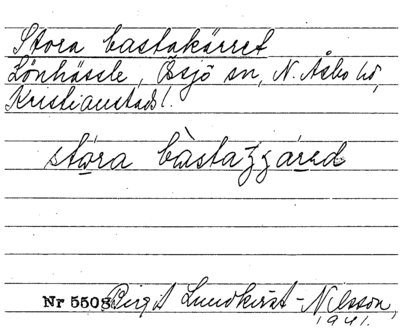 Stora bastakärret
Lönhässle, Össjö sn, N. Åsbo hd,
Kristianstads l.
stóra bàstaʒʒáred
Nr 5508 Birgit Lundkvist-Nilsson,
1941.